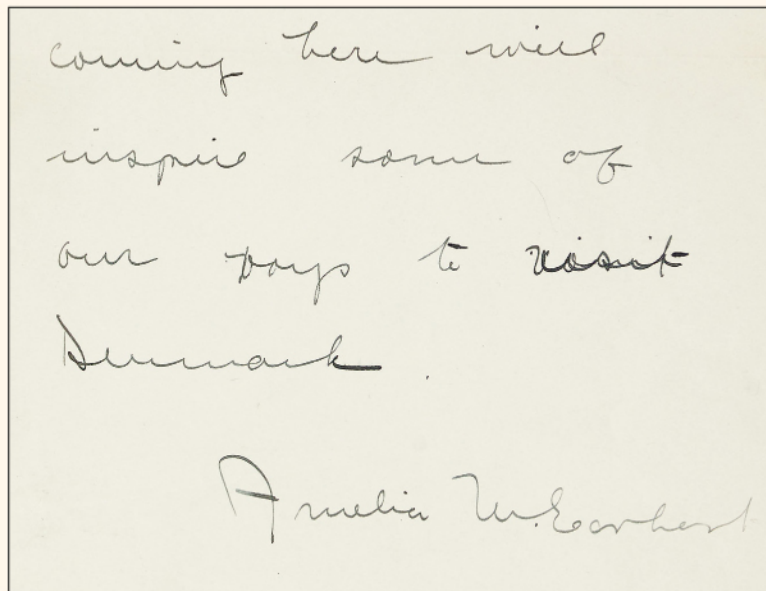 coming here will
inspire some of
our boys to visit
Denmark.
Amelia M. Earhart